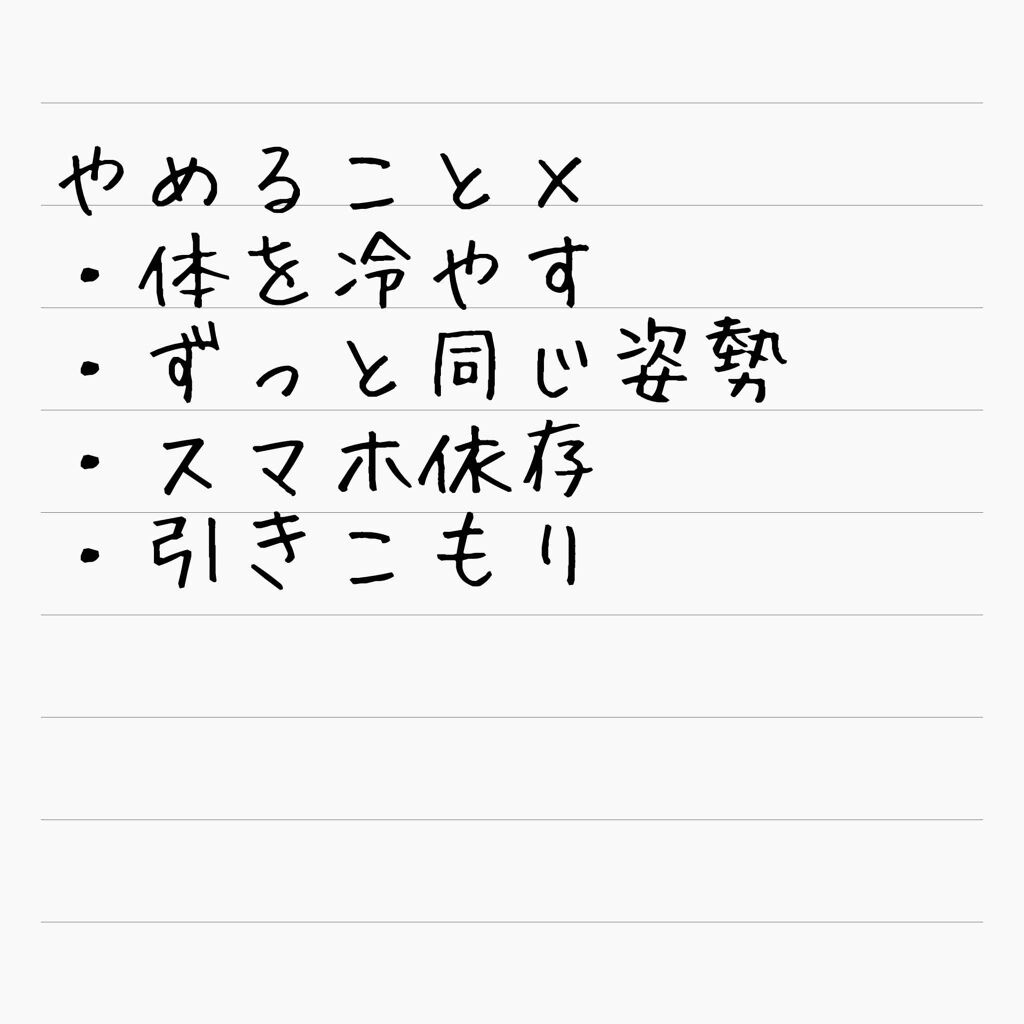 やめること×
・体を冷やす
・ずっと同じ姿勢
・スマホ依存
・引きこもり